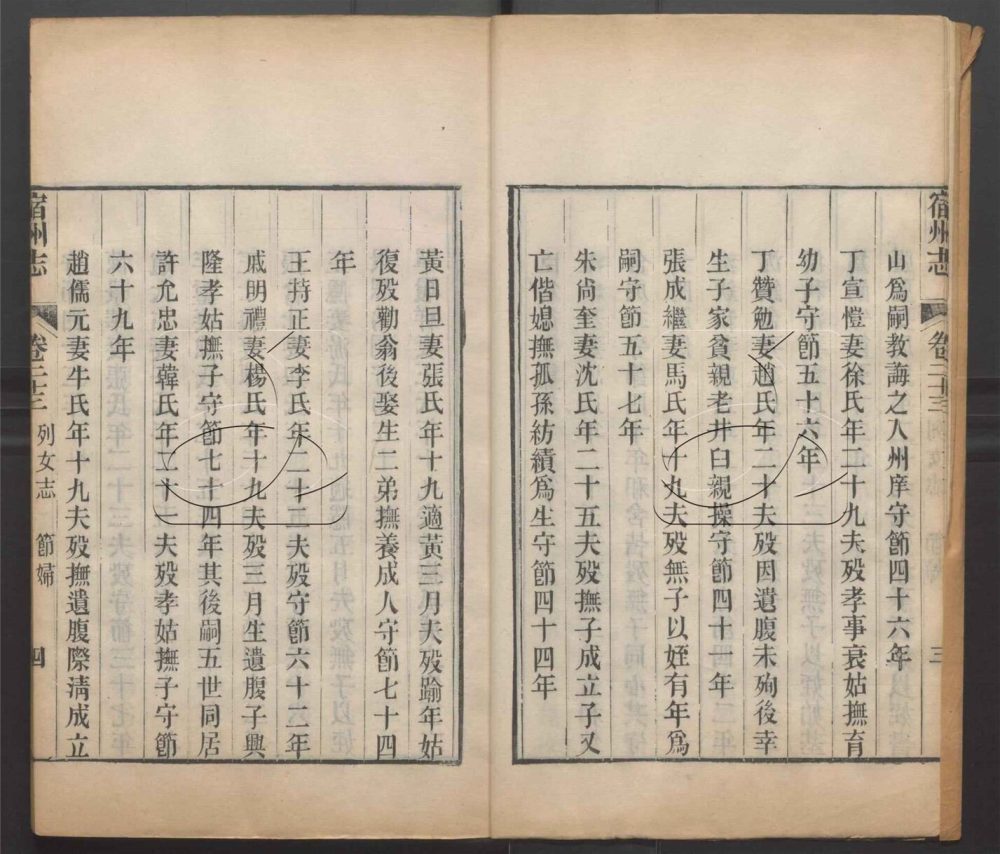 宿州志 卷二十三 三
山爲嗣教誨之入州庠守節四十六年
丁宣愷妻徐氏年二十九夫歿孝事衰姑撫育
幼子守節五十六年
丁贊勉妻趙氏年二十夫歿因遺腹未殉後幸
生子家貧親老井臼親操守節四十一年
張成繼妻馬氏年十九夫歿無子以姪有年爲
嗣守節五十七年
朱尚奎妻沈氏年二十五夫歿撫子成立子又
亡偕媳撫孤孫紡績爲生守節四十四年
黃日旦妻張氏年十九適黃三月夫歿踰年姑
復歿勸翁後娶生二弟撫養成人守節七十四
年
王持正妻李氏年二十五夫歿守節六十二年
戚明禮妻楊氏年十九夫歿三月生遺腹子興
隆孝姑撫子守節七十四年其後嗣五世同居
許允忠妻韓氏年二十一夫歿孝姑撫子守節
六十九年
趙儒元妻牛氏年十九夫歿撫遺腹際淸成立
宿州志 卷二十三 列女志 節婦 四